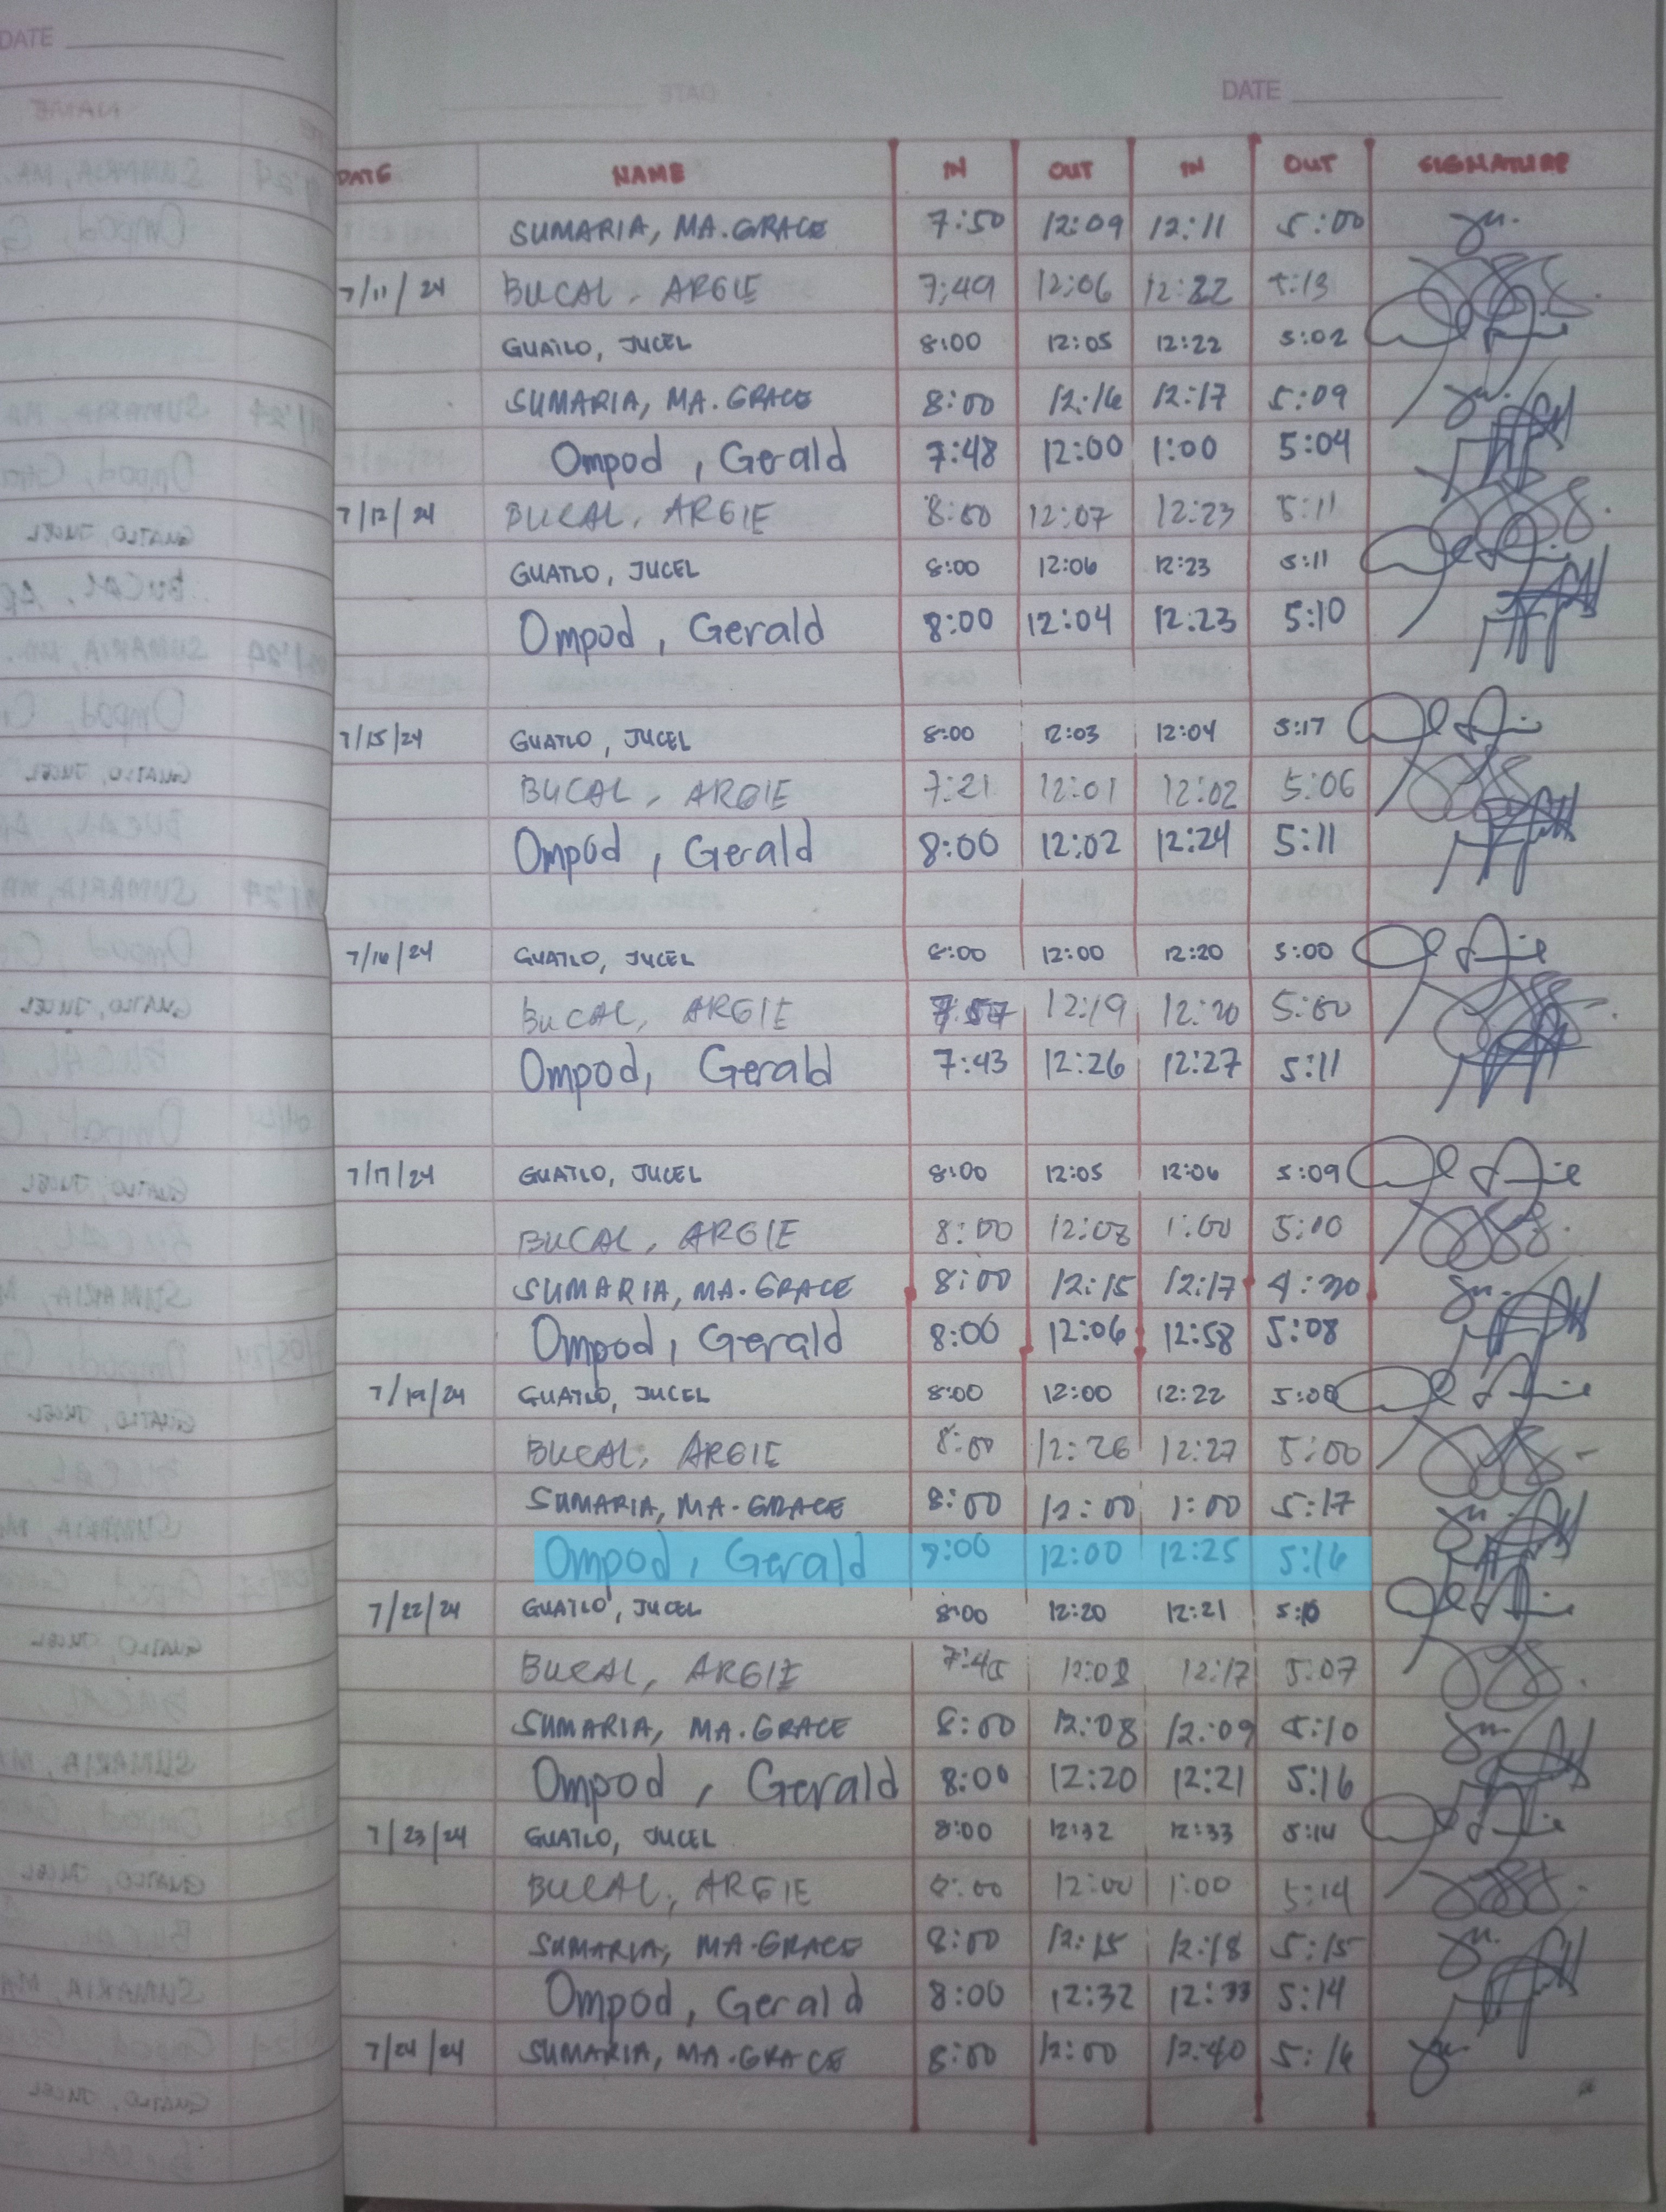 DATE
DATE
DATE NAME IN OUT IN OUT SIGNATURE
SUMARIA, MA. GRACE 7:50 12:09 12:11 5:00
7/11/24 BUCAL, ARGIE 7:49 12:06 12:22 5:13
GUATLO, JUCEL 8:00 12:05 12:22 5:02
SUMARIA, MA. GRACE 8:00 12:16 12:17 5:09
Ompod, Gerald 7:48 12:00 1:00 5:04
7/12/24 BUCAL, ARGIE 8:00 12:07 12:23 5:11
GUATLO, JUCEL 8:00 12:06 12:23 5:11
Ompod, Gerald 8:00 12:04 12:23 5:10
7/15/24 GUATLO, JUCEL 8:00 12:03 12:04 5:17
BUCAL, ARGIE 7:21 12:01 12:02 5:06
Ompod, Gerald 8:00 12:02 12:24 5:11
7/16/24 GUATLO, JUCEL 8:00 12:00 12:20 5:00
BUCAL, ARGIE 12:19 12:20 5:00
Ompod, Gerald 7:43 12:26 12:27 5:11
7/17/24 GUATLO, JUCEL 8:00 12:05 12:06 5:09
BUCAL, ARGIE 8:00 12:08 1:00 5:10
SUMARIA, MA. GRACE 8:00 12:15 12:17 4:30
Ompod, Gerald 8:00 12:06 12:58 5:08
7/19/24 GUATLO, JUCEL 8:00 12:00 12:22 5:00
BUCAL, ARGIE 8:00 12:26 12:27 5:00
SUMARIA, MA. GRACE 8:00 12:00 1:00 5:17
Ompod, Gerald 12:00 12:25 5:16
7/22/24 GUATLO, JUCEL 8:00 12:20 12:21
BUCAL, ARGIE 7:45 12:08 12:17 5:07
SUMARIA, MA. GRACE 8:00 12:08 12:09 5:10
Ompod, Gerald 8:00 12:20 12:21 5:16
7/23/24 GUATLO, JUCEL 8:00 12:32 12:33 5:14
BUCAL, ARGIE 8:00 12:00 1:00 5:14
SUMARIA, MA. GRACE 8:00 12:15 12:18 5:15
Ompod, Gerald 8:00 12:32 12:33 5:14
7/24/24 SUMARIA, MA. GRACE 8:00 12:00 12:40 5:16